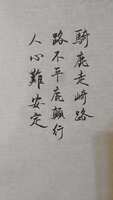 騎鹿走崎路
路不平鹿顛行
人心難安定